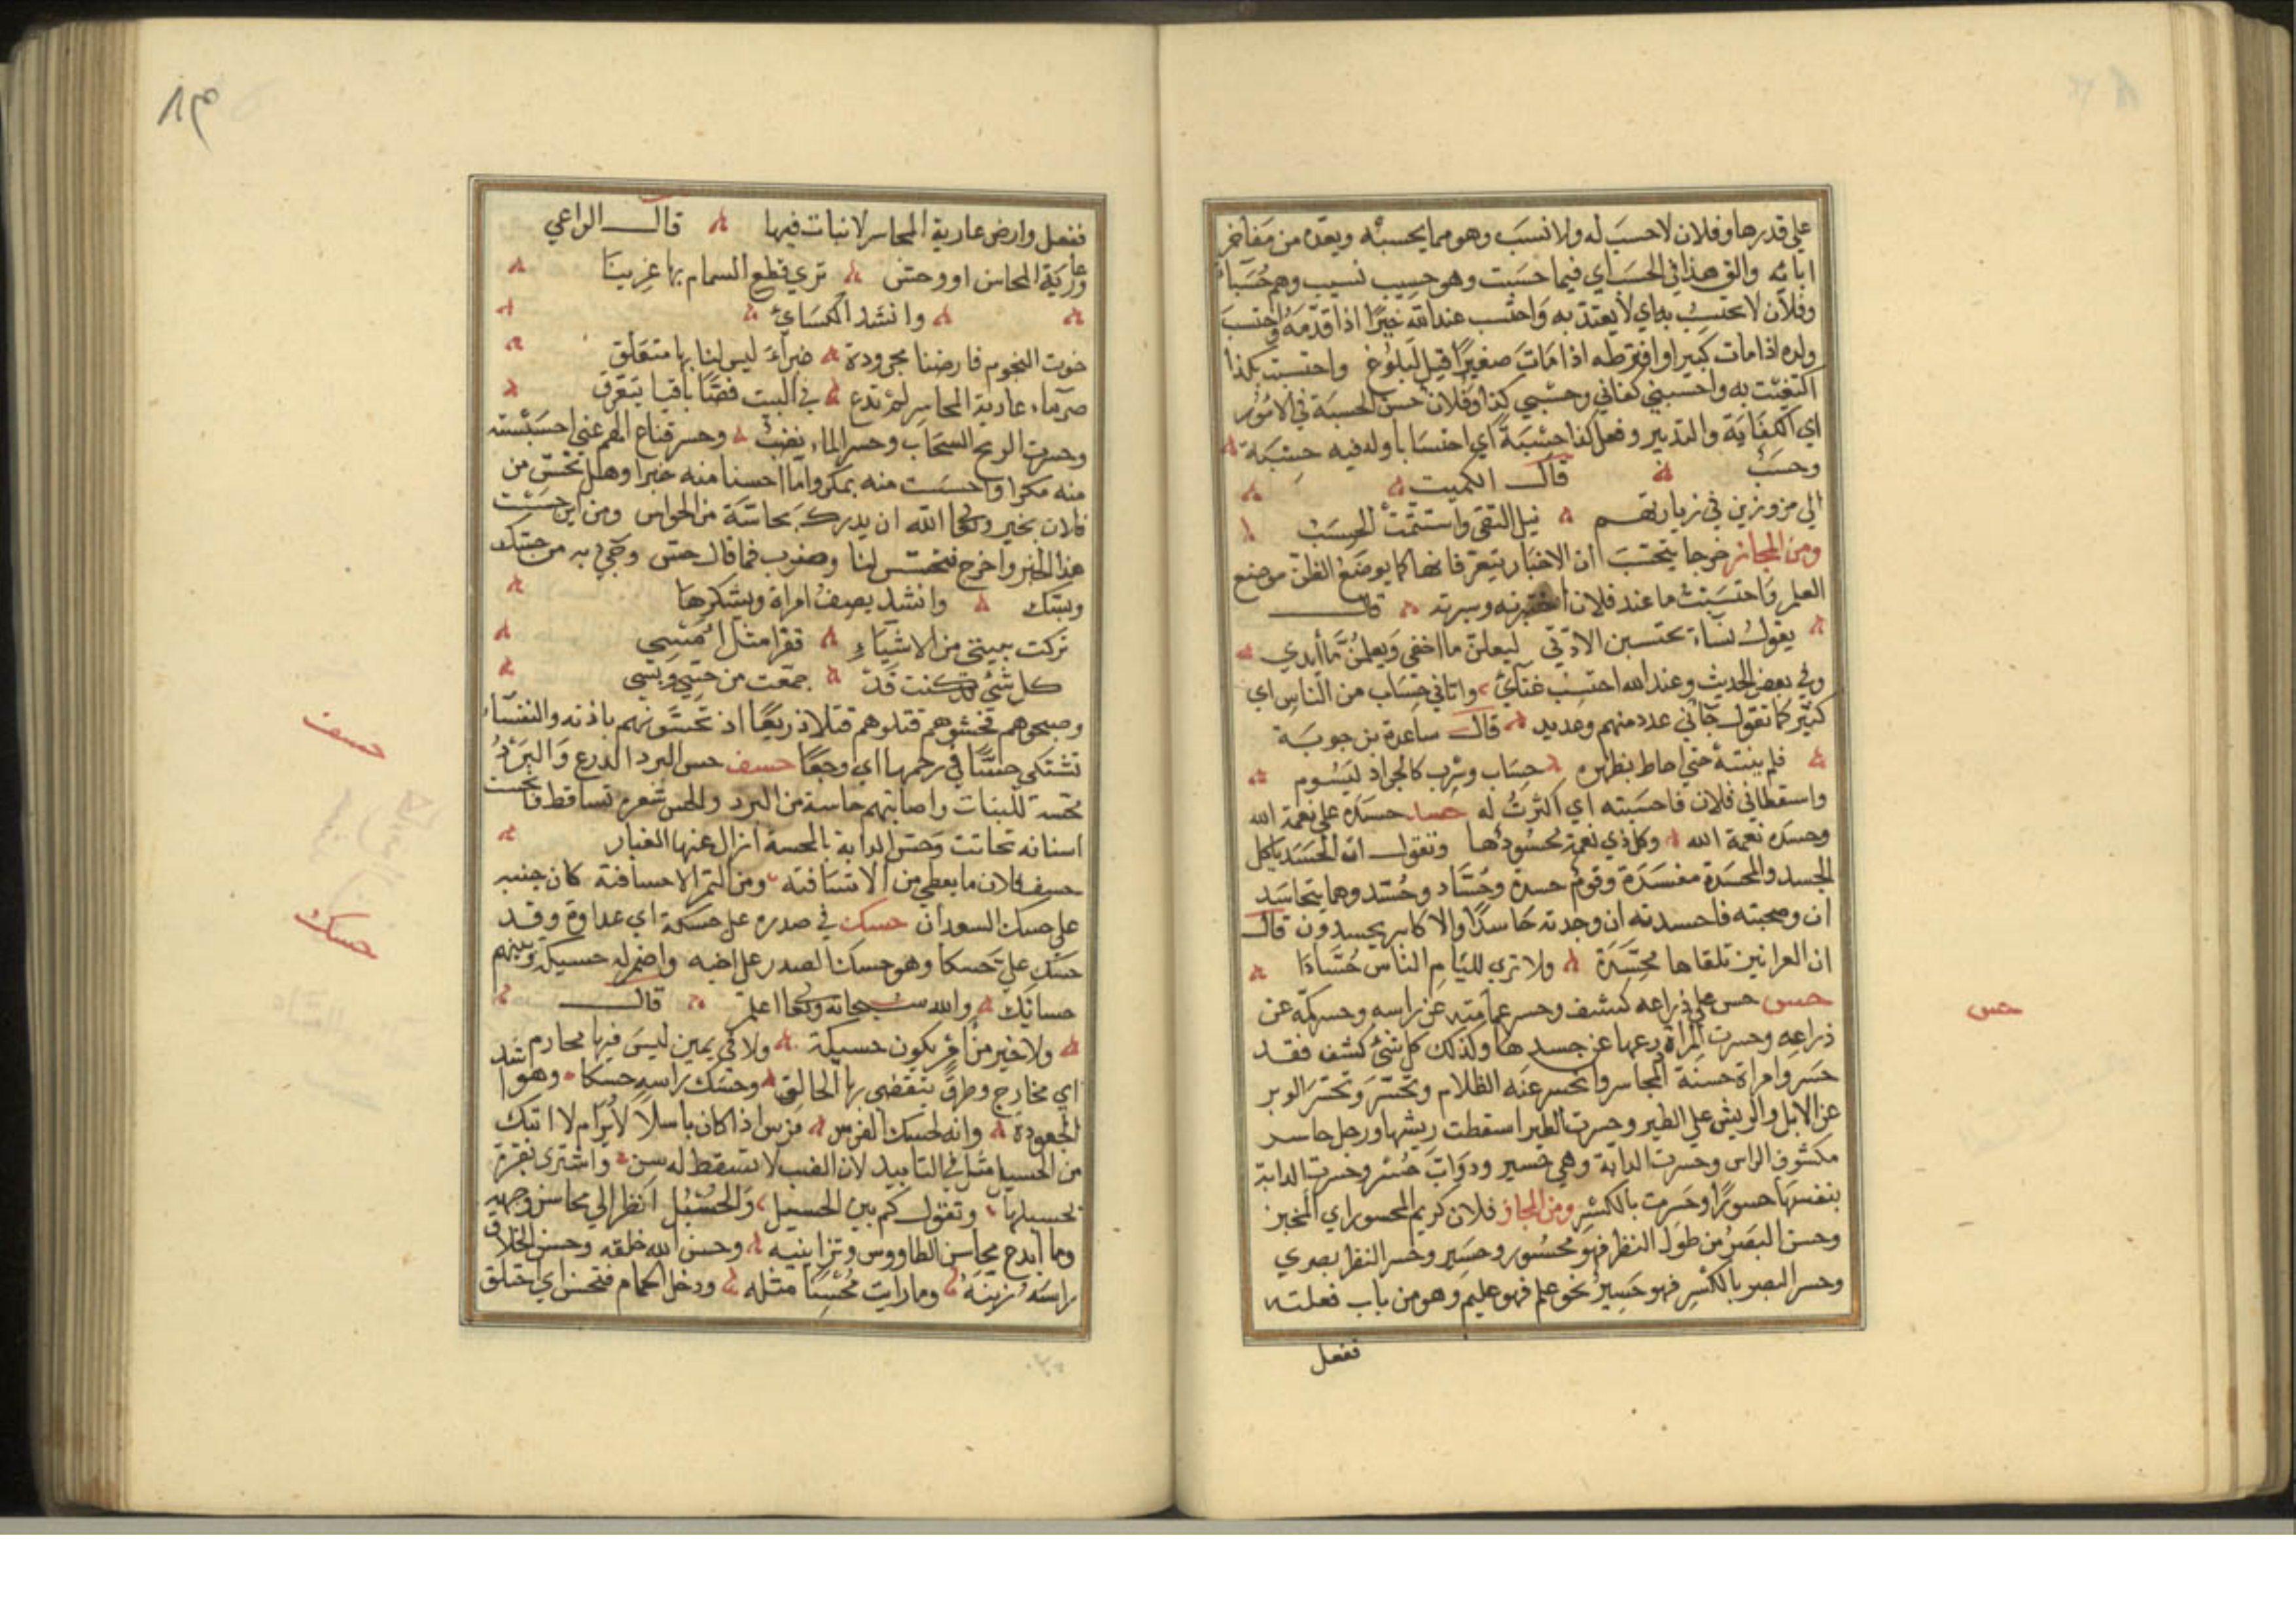 علي قدرها وفلان لا حسبَ له ولا نسبَ وهو مما يحسبه ويعدّه من مفاخر
ابائه والق هذا في الحسب اي فيما حسبت وهو حسيب نسيب وهم حُسَباء
وفلان لا يحتسب به اي لا يعتد به واحتسب عند الله خيرًا اذا قدّمه واحتسب
ولده اذا مات كبيرا وافترطه اذا مات صغيرًا قبل البلوغ واحتسبت بكذا
اكتفيت به واحسبني كفاني وحسبي كذا وفلان حسن الحسبة في الامور
اي الكفاية والتدبير وفعل كذا حسبةً اي احتسابا وله فيه حسبة
وحسَبٌ قال الكميت
الي مزورين في زيارتهم نيل التقى واستتمت الحسب
ومن المجاز خرجا يتحسب ان الاخبار يتعرفانها كما يوضع الظن موضع
العلم واحتسبت ما عند فلان اختبرته وسبرته قال
يقول نساء يحتسبن الادتي ليعلمن ما اخفي ويعلمن ما أبدي
وفي بعض الحديث وعند الله احتسب عنائي واتاني حساب من الناس اي
كثير كما تقول جاني عدد منهم وعديد قال ساعدة بن جوية
فلم ينتبه حتي احاط بظهره حساب وسرب كالجراد يسوم
واستعطاني فلان فاحسبته اي اكثرت له حسد حسده علي نعمة الله
وحسده نعمة الله وكل ذي نعمة محسودها وتقول ان الحسد ياكل
الجسد والمحسدة مفسدة وقوم حسدة وحُسّاد وحُسّد وهما يتحاسد
ان وصحبته فاحسدته ان وجدته حاسدًا والاكابر يحسدون قال
ان العرانين تلقاها محسّدة ولا تري للئام الناس حُسّادا
حسر حسر علي ذراعه كشف وحسر عمامته عن راسه وحسر كمّه عن
ذراعه وحسرت المراة درعها عن جسدها وكذلك كل شئ كشف فقد
حسر وامراة حسنة المحاسر وانحسر عنه الظلام وتحسّر وتحسّر الوبر
عن الابل والريش علي الطير وحسرت الطير اسقطت ريشها ورجل حاسر
مكشوف الراس وحسرت الدابة وهي حسير ودوابّ حسر وحسرت الدابة
بنفسها حسورًا وحسرت بالكسر ومن المجاز فلان كريم المحسر اي المخبر
وحسر البصر من طول النظر فهو محسور وحسير وحسر النظر بصري
وحسر البصر بالكسر فهو حسيرٌ نحو علم فهو عليم وهو من باب فعلته
ففعل
حسر
١٣٨
ففعل وارض عارية المحاسر لا نبات فيها قال الراعي
وعارية المحاسر ام وحش تري قطع السمام بها عزينا
وانشد الكسائي
خوت النجوم فارضنا مجرودة غبراء ليس لنا بها متعلق
صرماء عارية المحاسر لم تدع في البيت باقيا يتعرق
وحسرت الريح السحاب وحسر الماء نضب وحسر قناع الهم عني
منه مكرا واحسست منه بمكر وما احسنا منه خبرا وهل تحسّ من
فلان بخير وتعالى الله ان يدرك بحاسّة من الحواس ومن اين حسست
هذا الخبر واخرج فتحسس لنا وضرب فما قال حس وجئ به من حسّك
وبسّك وانشد يصف امراة ويشكرها
تركت بيتي من الاشياء قفرا مثل امس
كل شئ كنت قد جمّعت من حسّي وبسّي
وصبحوهم فحسّوهم قتلوهم قتلا ذريعًا اذ تحسّونهم باذنه والنفساء
تشتكي حسًّا في رحمها اي وجعًا حسف حس البرد الزرع والبرد
محسة للنبات واصابتهم حاسة من البرد وانحس شعره تساقط وانحست
اسنانه تحاتت وحس الدابة بالمحسة ازال عنها الغبار
حسف فلان ما يعطي من الا حسافته ومن التمر الا حسافة كان جنبه
علي حسك السعدان حسك في صدره علي حسكة اي عداوة وقد
حسك علي حسكا وهو حسك الصدر علي اخيه واضمر له حسيكة وبينهم
حسائك والله سبحانه وتعالى اعلم قال
ولا خير من امر يكون حسيكة ولا في يمين ليس فيها محارم
اي مخارج وطرق يتقضى بها الحالف وحسك راسه حسكا وهو اشد
الجعودة وانه لحسك المرس مرس اذا كان باسلا لا يرام لا اتيك
سن الحسل مثل في التابيد لان الضب لا تسقط له سن واشترى بقرة
بحسيلها وتقول كم بين الحسيل والحسيل انظر الي محاسن وجهه
وما ابدع محاسن الطاووس وتزايينه وحسن الله خلقه وحسن الحلاق
راسه زينه وما رايت محسنا مثله ودخل الحمام فتحسن اي احتلق
حسف
حسك